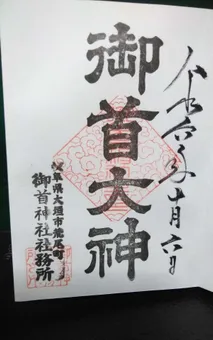 令和六年十月六日
御首大神
岐阜県大垣市荒尾町
御首神社社務所